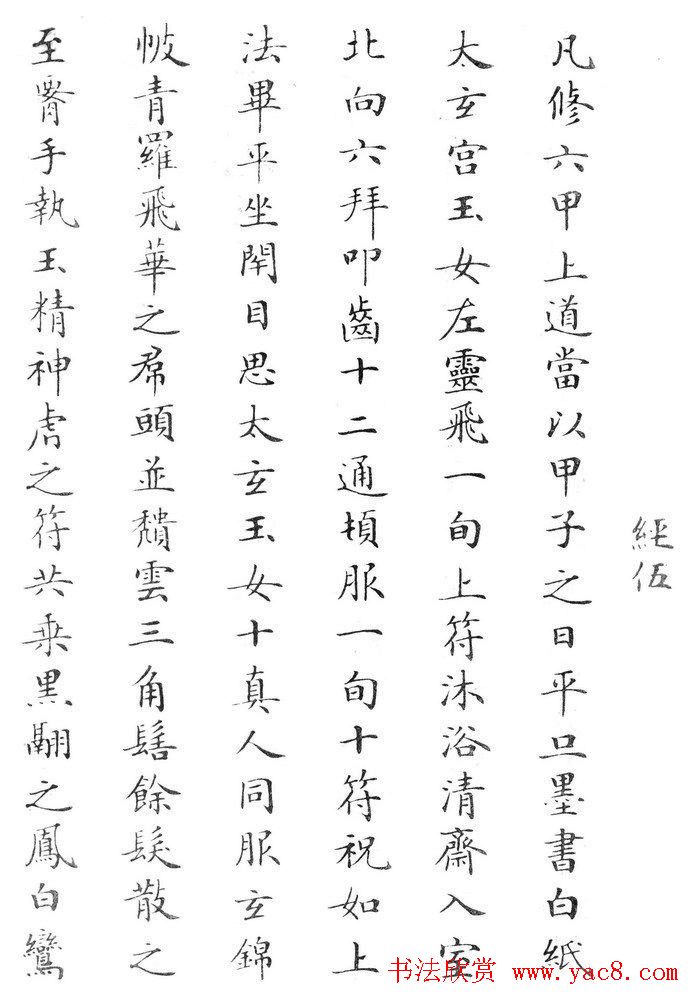 經伍
凡修六甲上道當以甲子之日平旦墨書白紙
太玄宮玉女左靈飛一旬上符沐浴清齋入室
北向六拜叩齒十二通頓服一旬十符祝如上
法畢平坐閉目思太玄玉女十真人同服玄錦
帔青羅飛華之帬頭並頹雲三角髻餘髮散之
至腰手執玉精神虎之符共乘黑翮之鳳白鸞
书法欣赏 www.yac8.com